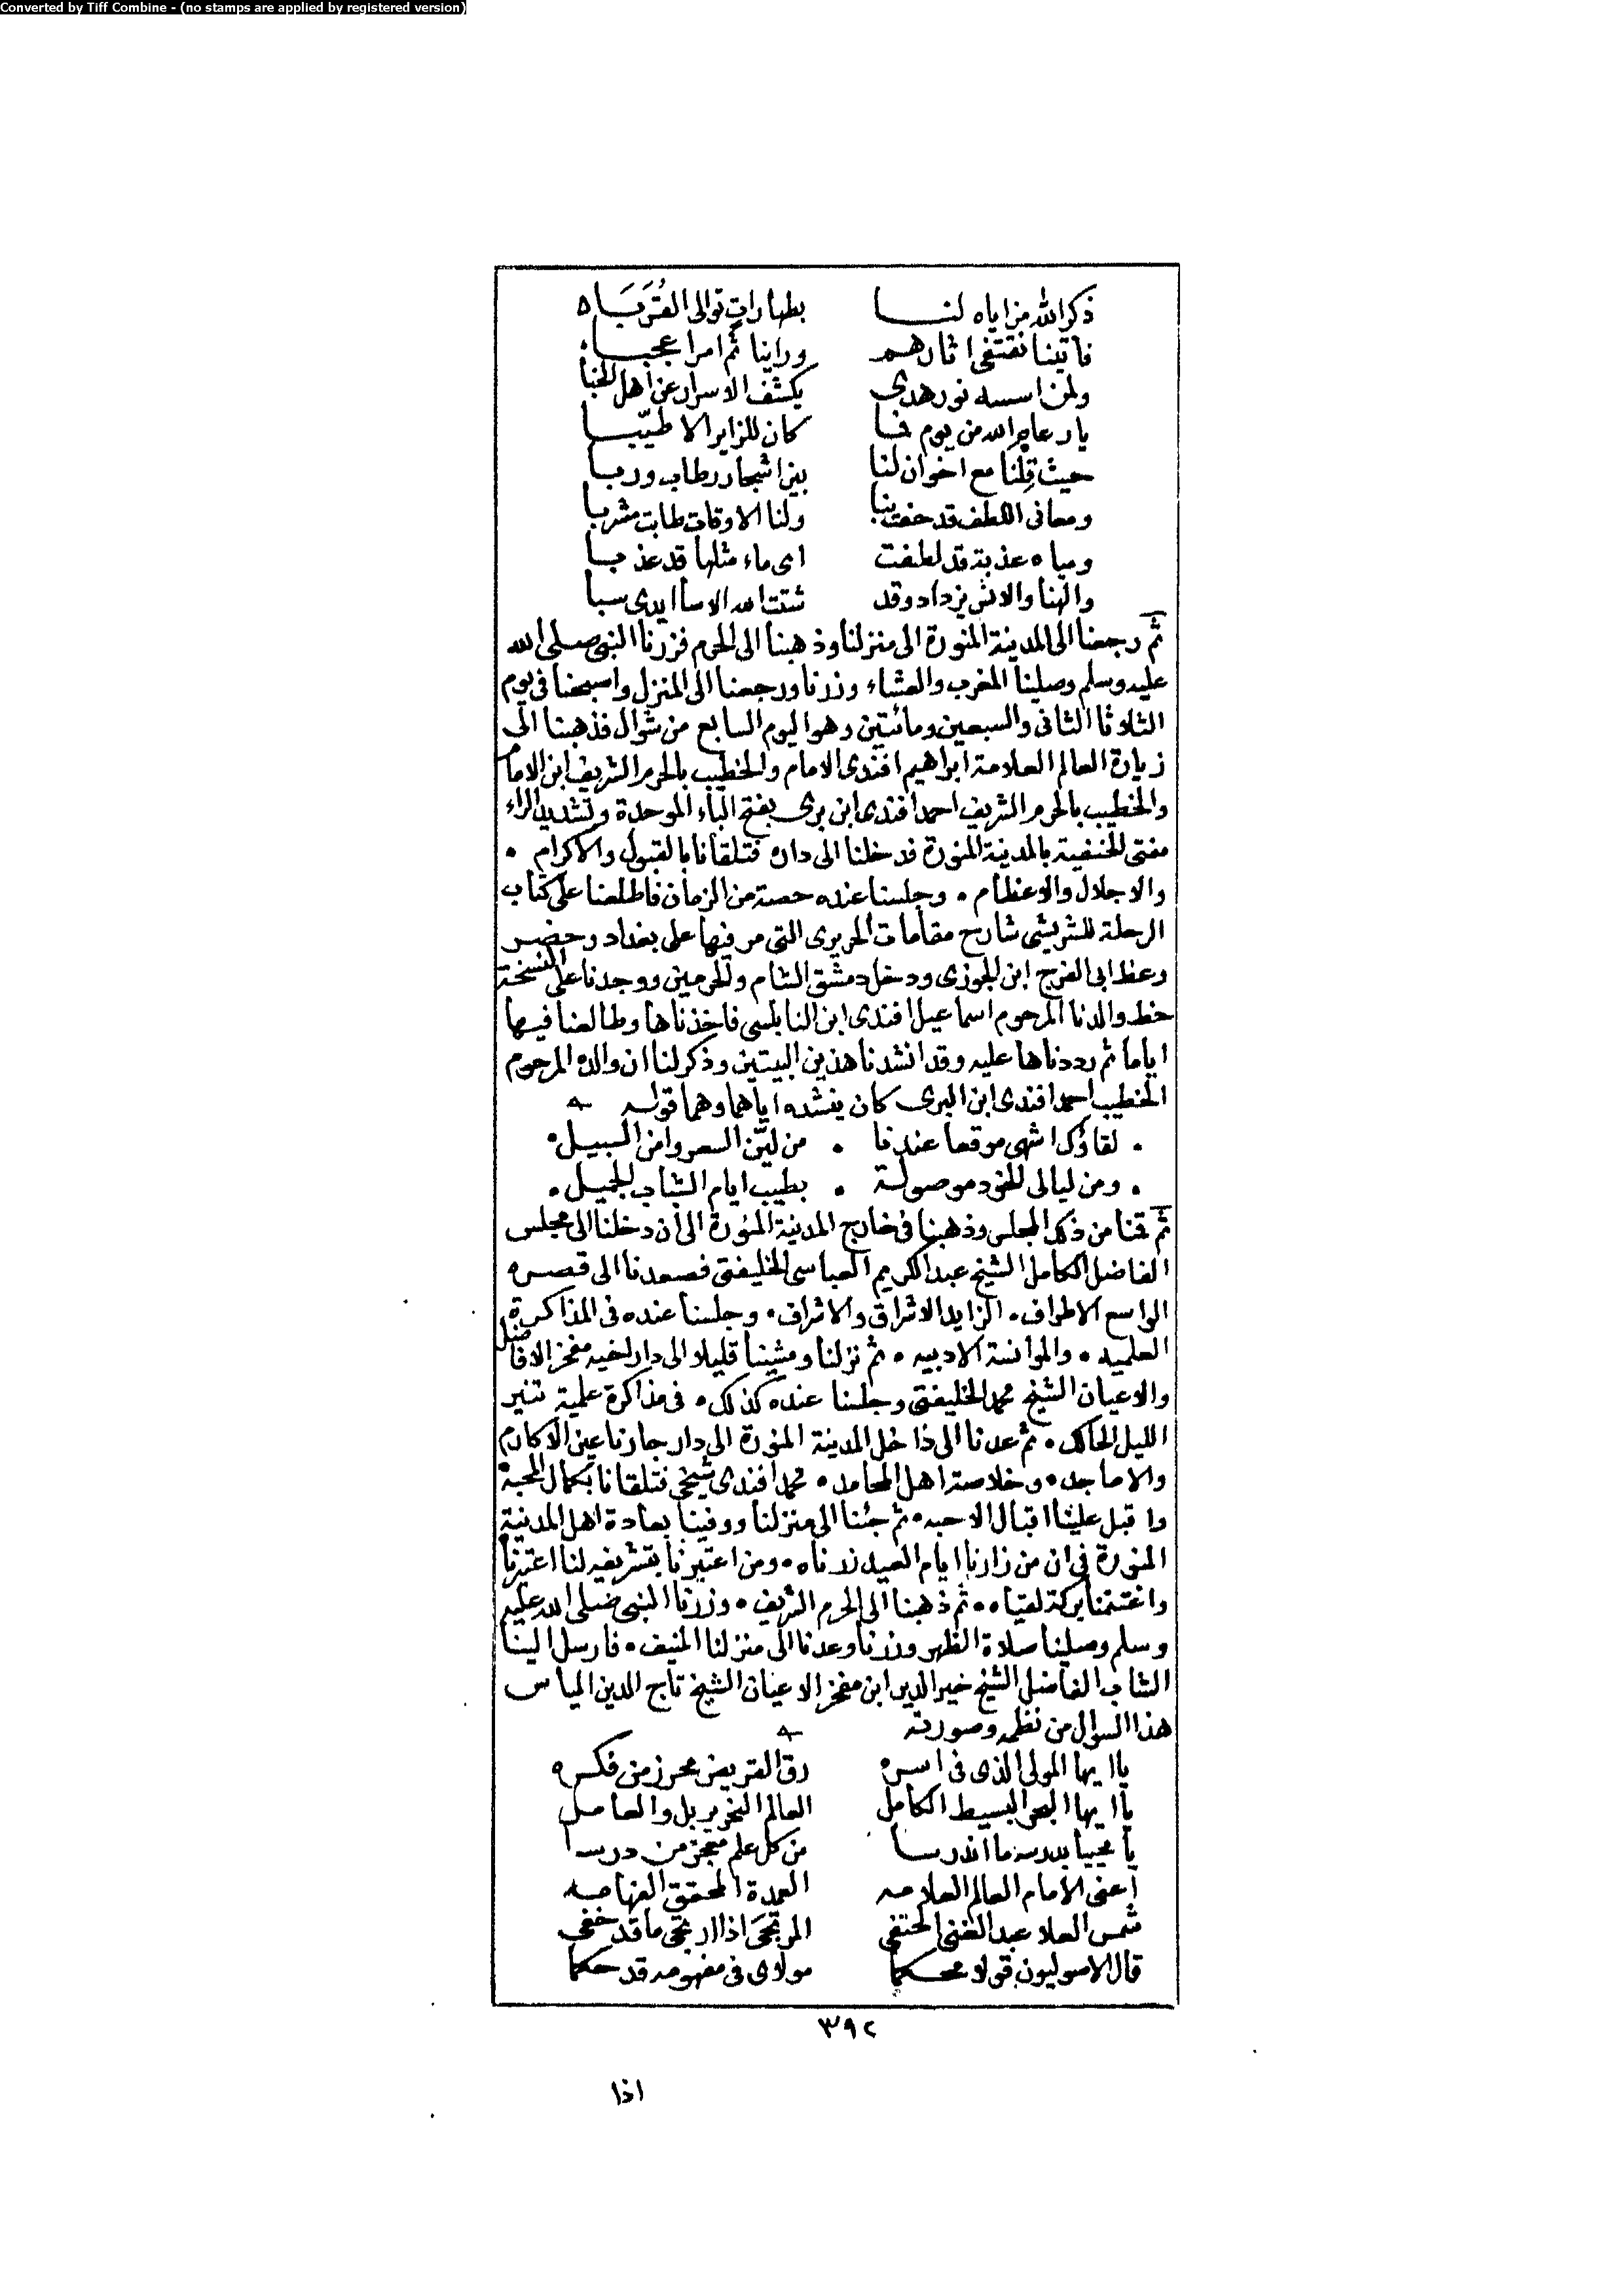 Converted by Tiff Combine - (no stamps are applied by registered version)
ذكر الله مزاياه لنا بطهارات توالى القُرَبَاه
فاتينا نقتفى اثارهم وراينا ثم امرا عجبا
ولمن اسسه نور هدى يكشف الاسرار عن اهل الخبا
يا رعاه الله من يوم كان للزاير الاطيّبا
حيث قِلْنا مع اخوان لنا بين اشجار رطاب وربا
ومعانى اللطف قد حفت بنا ولنا الاوقات طابت مشربا
ومياه عذبة قد لطفت اى ماء مثلها قد عذبا
والهنا والانس يزداد وقد شتت الله الاسا ايدى سبا
ثم رجعنا الى المدينة المنورة الى منزلنا وذهبنا الى الحرم فزرنا النبى صلى الله
عليه وسلم وصلينا المغرب والعشاء وزرنا ورجعنا الى المنزل واصبحنا فى يوم
الثلاثا الثانى والسبعين ومائتين وهو اليوم السابع من شوال فذهبنا الى
زيارة العالم العلامة ابراهيم افندى الامام والخطيب بالحرم الشريف ابن الامام
والخطيب بالحرم الشريف احمد افندى ابن برى بفتح الباء الموحدة وتشديد الراء
مفتى الحنفية بالمدينة المنورة فدخلنا الى داره فتلقانا بالقبول والاكرام .
والاجلال والاعظام . وجلسنا عنده حصة من الزمان فاطلعنا على كتاب
الرحلة للشريشى شارح مقامات الحريرى التى مر فيها على بغداد وحضر
وعظ ابى الفرج ابن الجوزى ودخل دمشق الشام والحرمين ووجدنا على النسخة
خط والدنا المرحوم اسماعيل افندى ابن النابلسى فاخذناها وطالعنا فيها
اياما ثم رددناها عليه وقد انشدنا هذين البيتين وذكر لنا ان والده المرحوم
الخطيب احمد افندى ابن البرى كان ينشده اياهما وهما قوله
. لقاؤك اشهى موقعا عندنا . من ليّن السعر وامن السبيل .
. ومن ليالى الخود موصولة . بطيب ايام الشباب الجميل .
ثم قمنا من ذلك المجلس وذهبنا فى خارج المدينة المنورة الى أن دخلنا الى مجلس
الفاضل الكامل الشيخ عبد الكريم العباسى الخليفتى فصعدنا الى قصره
الواسع الاطراف . الزايد الاشراق والاشراف . وجلسنا عنده فى المذاكرة
العلميه . والموانسة الادبيه . ثم نزلنا ومشينا قليلا الى دار اخيه مفخر الافاضل
والاعيان الشيخ محمد الخليفتى وجلسنا عنده كذلك . فى مذاكرة علمية تنير
الليل الحالك . ثم عدنا الى داخل المدينة المنورة الى دار جارنا عين الاكارم
والاماجد . وخلاصة اهل المحامد . محمد افندى شيخى فتلقانا بكمال المحبة
واقبل علينا اقبال الاحبه . ثم جئنا الى منزلنا ووفينا بعادة اهل المدينة
المنورة فى ان من زارنا ايام العيد زرناه . ومن اعتبرنا بتشريفه لنا اعتبرنا
واغتنمنا بركة لقياه . ثم ذهبنا الى الحرم الشريف . وزرنا النبى صلى الله عليه
وسلم وصلينا صلاة الظهر وزرنا وعدنا الى منزلنا المنيف . فارسل الينا
الشاب الفاضل الشيخ خير الدين ابن مفخر الاعيان الشيخ تاج الدين الياس
هذا السؤال من نظمه وصورته
يا ايها المولى الذى فى اسره رق القريض محرز من فكره
يا ايها البحر البسيط الكامل العالم النحرير بل والعامل
يا محييا بدرسه ما اندرسا من كل علم معجز من درسا
أعنى الامام العالم العلامه العمدة المحقق الفهامه
شمس العلا عبد الغنى الحنفى المرتجَى اذا ارتجى ما قد خفى
قال الاصوليون قولا محكما مولاى فى مفهومه قد حكما
٣٩٢
اذا